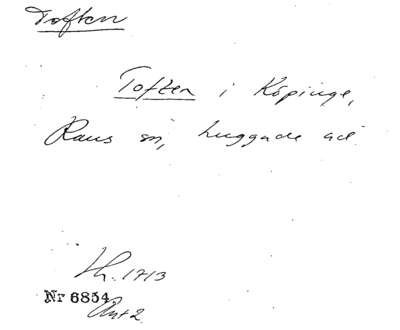 Toften
Toften i Köpinge,
Raus sn, huggade ací
Lh. 1713
Nr 6854
Ant 2